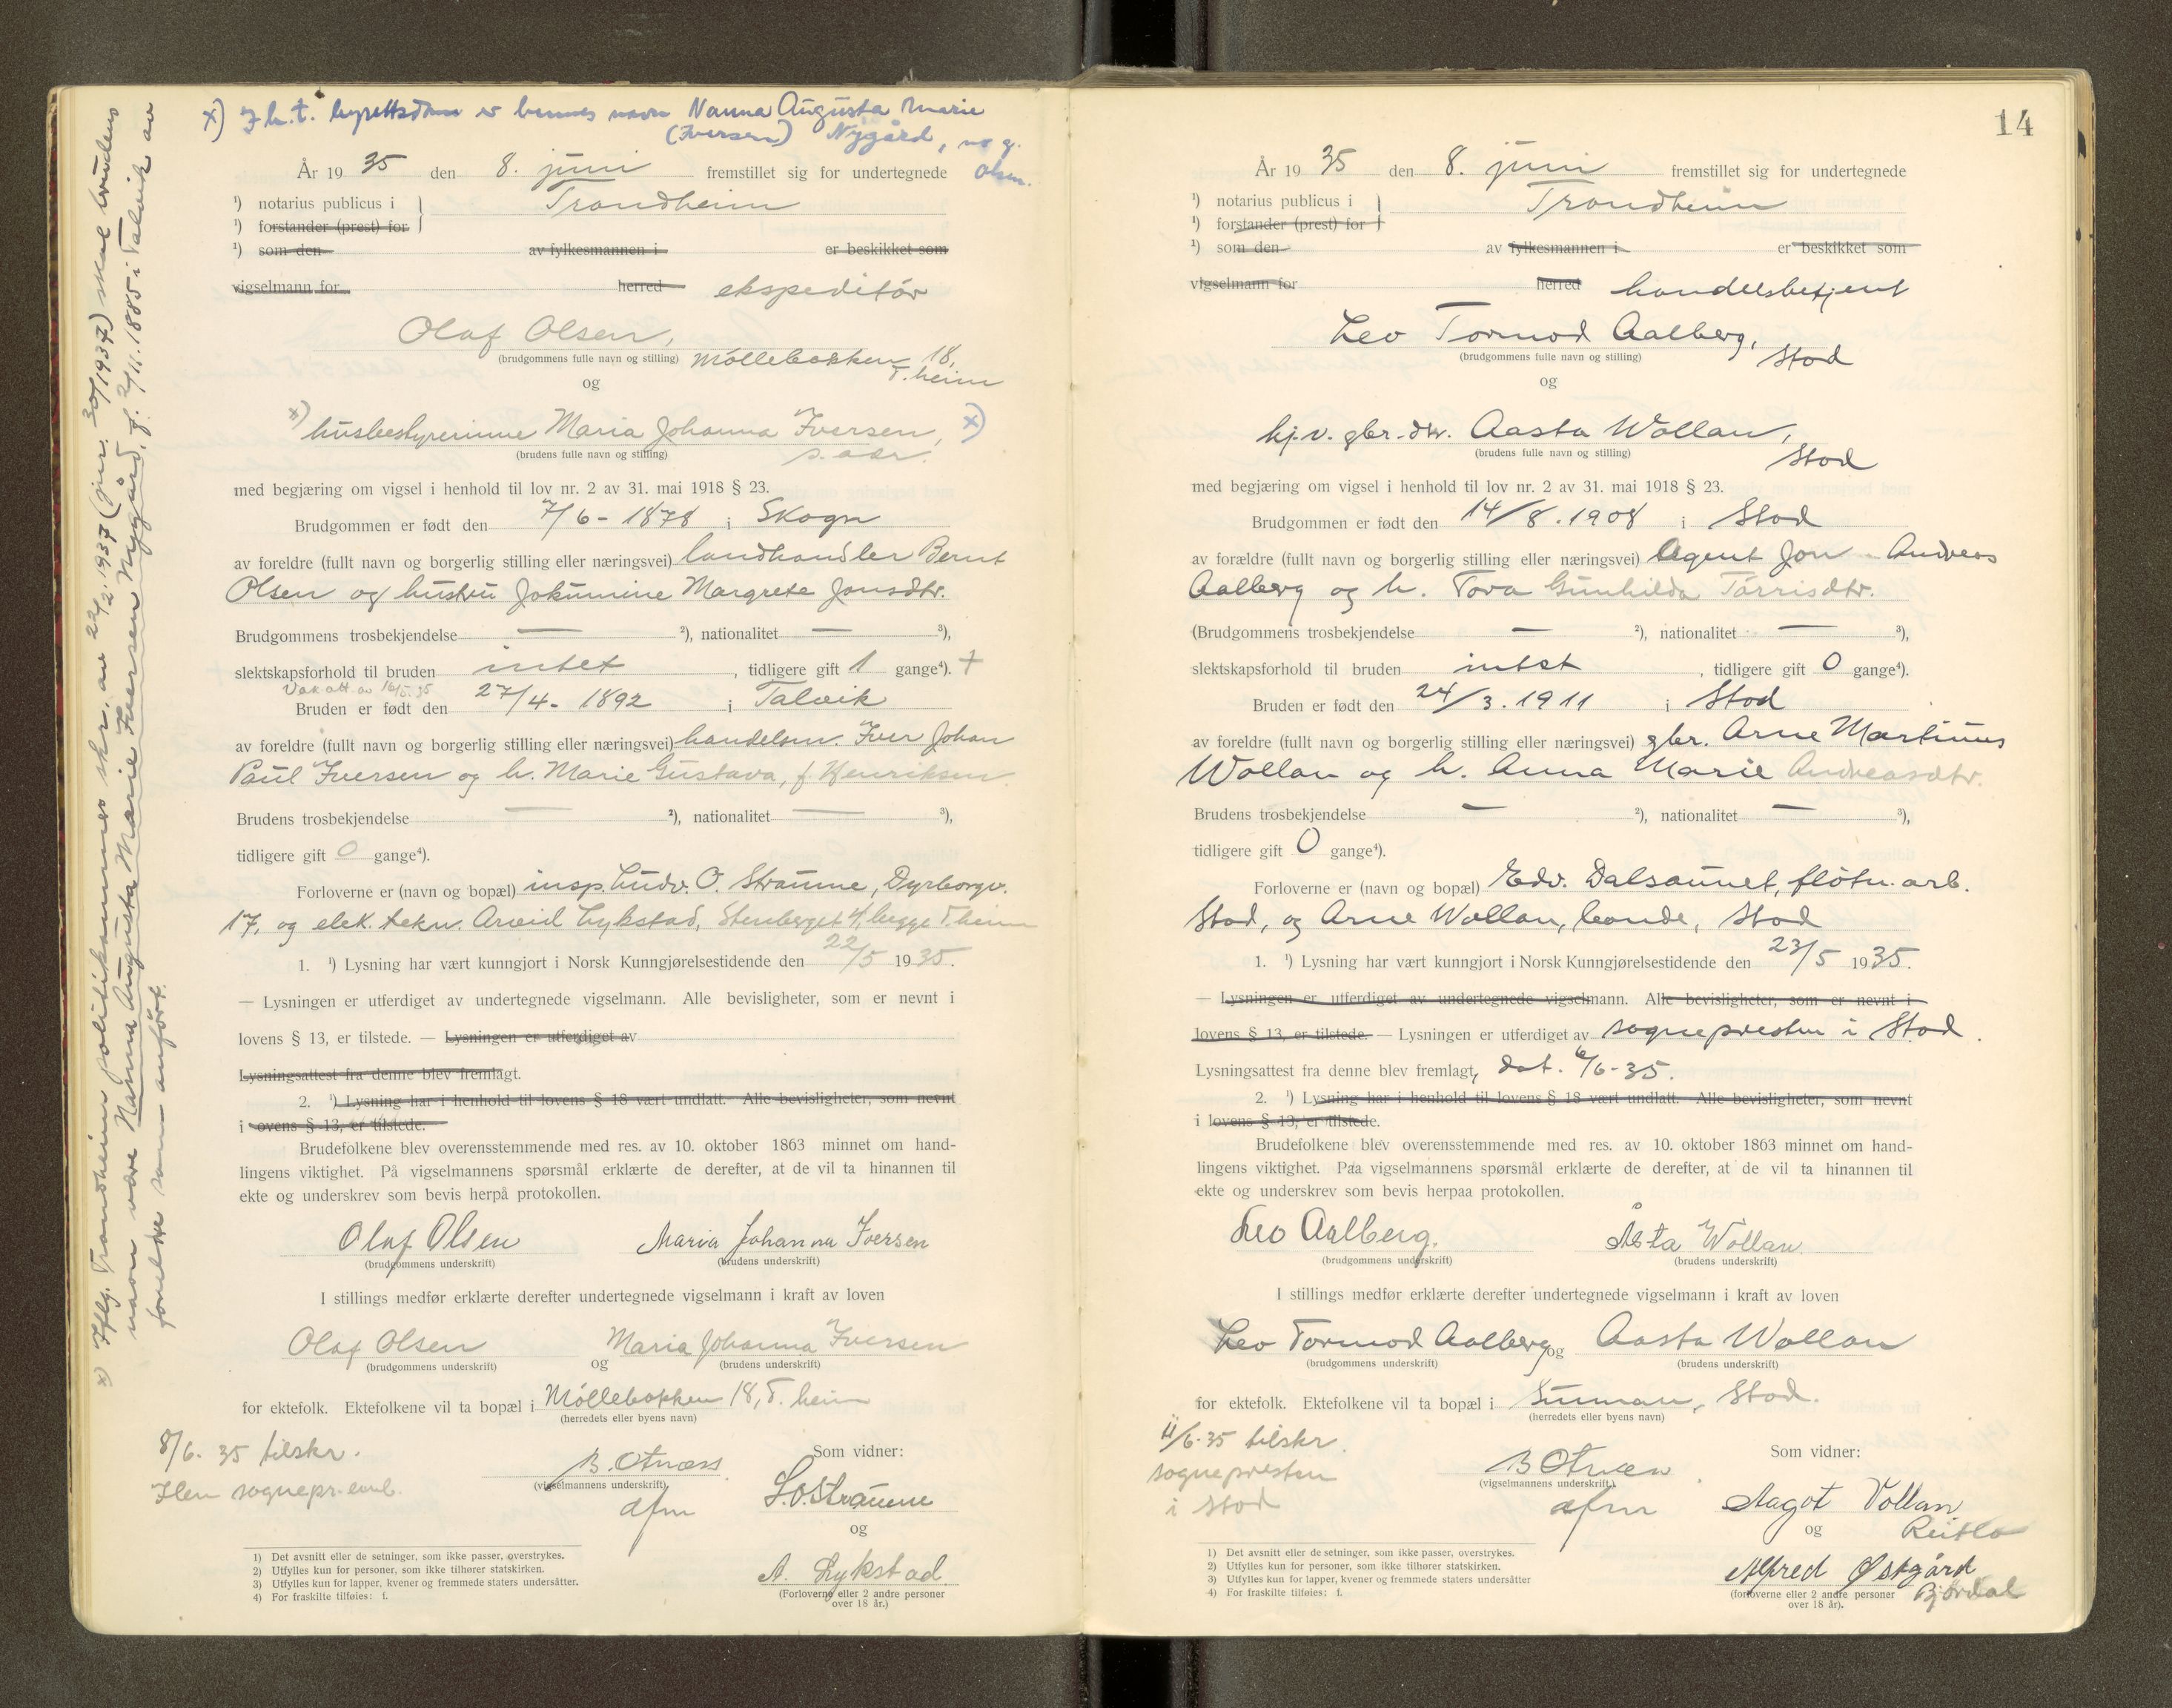 x) I h.t. byrettsdom er hennes navn Nanna Augusta Marie
(Iversen) Nygård, no g.
Olsen.
År 1935 den 8. juni fremstillet sig for undertegnede
¹) notarius publicus i } Trondheim
¹) forstander (prest) for
¹) som den av fylkesmannen i er beskikket som
vigselmann for herred ekspeditør
Olaf Olsen,
(brudgommens fulle navn og stilling) Møllebakken 18,
T.heim
og
x) husbestyrerinne Maria Johanna Iversen, x)
(brudens fulle navn og stilling) s. adr.
med begjæring om vigsel i henhold til lov nr. 2 av 31. mai 1918 § 23.
Brudgommen er født den 7/6 - 1878 i Skogn
av foreldre (fullt navn og borgerlig stilling eller næringsvei) landhandler Bernt
Olsen og hustru Jokumine Margrete Jonsdtr.
Brudgommens trosbekjendelse — ²), nationalitet — ³),
slektskapsforhold til bruden intet, tidligere gift 1 gange⁴). +
Vak.att. av 16/5.35
Bruden er født den 27/4 - 1892 i Talvik
av foreldre (fullt navn og borgerlig stilling eller næringsvei) handelsm. Iver Johan
Paul Iversen og h. Marie Gustava, f. Henriksen
Brudens trosbekjendelse — ²), nationalitet — ³),
tidligere gift 0 gange⁴).
Forloverne er (navn og bopæl) insp. Ludv. O. Straume, Dyrborgv.
17, og elek. tekn. Arvid Lykstad, Stenberget 4, begge T.heim
1. ¹) Lysning har vært kunngjort i Norsk Kunngjørelsestidende den 22/5 1935.
— Lysningen er utferdiget av undertegnede vigselmann. Alle bevisligheter, som er nevnt i
lovens § 13, er tilstede. — Lysningen er utferdiget av
Lysningsattest fra denne blev fremlagt.
2. ¹) Lysning har i henhold til lovens § 18 vært undlatt. Alle bevisligheter, som nevnt
i lovens § 13, er tilstede.
Brudefolkene blev overensstemmende med res. av 10. oktober 1863 minnet om hand-
lingens viktighet. På vigselmannens spørsmål erklærte de derefter, at de vil ta hinannen til
ekte og underskrev som bevis herpå protokollen.
Olaf Olsen Maria Johanna Iversen
(brudgommens underskrift) (brudens underskrift)
I stillings medfør erklærte derefter undertegnede vigselmann i kraft av loven
Olaf Olsen og Maria Johanna Iversen
(brudgommens underskrift) (brudens underskrift)
for ektefolk. Ektefolkene vil ta bopæl i Møllebakken 18, T.heim
(herredets eller byens navn)
8/6. 35 tilskr.
Ilen sognepr.emb.
B. Otnæss
(vigselmannens underskrift)
afm
Som vidner:
L.O. Straume
og
A. Lykstad
(Forloverne eller 2 andre personer
over 18 år.)
1) Det avsnitt eller de setninger, som ikke passer, overstrykes.
2) Utfylles kun for personer, som ikke tilhører statskirken.
3) Utfylles kun for lapper, kvener og fremmede staters undersåtter.
4) For fraskilte tilføies: f.
x) Iflg. Trondheim politikammers skr. av 22/2.1937 (jnr. 30/1937) skal brudens
navn være Nanna Augusta Marie Iversen Nygård, f. 2/11.1885 i Talvik av
foreldre som anført.
14
År 1935 den 8. juni fremstillet sig for undertegnede
¹) notarius publicus i } Trondheim
¹) forstander (prest) for
¹) som den av fylkesmannen i er beskikket som
vigselmann for herred handelsbetjent
Leo Tormod Aalberg,
(brudgommens fulle navn og stilling) Stod
og
hj.v. gbr.dtr. Aasta Wollan,
(brudens fulle navn og stilling) Stod
med begjæring om vigsel i henhold til lov nr. 2 av 31. mai 1918 § 23.
Brudgommen er født den 14/8.1908 i Stod
av forældre (fullt navn og borgerlig stilling eller næringsvei) Agent Jon Andreas
Aalberg og h. Tora Gunhilda Tørrisdtr.
(Brudgommens trosbekjendelse — ²), nationalitet — ³),
slektskapsforhold til bruden intet, tidligere gift 0 gange⁴).
Bruden er født den 24/3.1911 i Stod
av foreldre (fullt navn og borgerlig stilling eller næringsvei) gbr. Arne Martinus
Wollan og h. Anna Marie Andreasdtr.
Brudens trosbekjendelse — ²), nationalitet — ³),
tidligere gift 0 gange⁴).
Forloverne er (navn og bopæl) Edv. Dalsaunet, fløtn.arb.
Stod, og Arne Wollan, bonde, Stod
1. ¹) Lysning har vært kunngjort i Norsk Kunngjørelsestidende den 23/5 1935.
— Lysningen er utferdiget av undertegnede vigselmann. Alle bevisligheter, som er nevnt i
lovens § 13, er tilstede. — Lysningen er utferdiget av sognepresten i Stod.
Lysningsattest fra denne blev fremlagt, dat. 6/6-35.
2. ¹) Lysning har i henhold til lovens § 18 vært undlatt. Alle bevisligheter, som nevnt
i lovens § 13, er tilstede.
Brudefolkene blev overensstemmende med res. av 10. oktober 1863 minnet om hand-
lingens viktighet. Paa vigselmannens spørsmål erklærte de derefter, at de vil ta hinannen til
ekte og underskrev som bevis herpaa protokollen.
Leo Aalberg. Åsta Wollan
(brudgommens underskrift) (brudens underskrift)
I stillings medfør erklærte derefter undertegnede vigselmann i kraft av loven
Leo Tormod Aalberg og Aasta Wollan
(brudgommens underskrift) (brudens underskrift)
for ektefolk. Ektefolkene vil ta bopæl i Sunnan, Stod.
(herredets eller byens navn)
11/6-35 tilskr.
sognepresten
i Stod
B Otnæss
(vigselmannens underskrift.)
afm
Som vidner:
Aagot Vollan
og Reitlo
Alfred Østgård
(forloverne eller 2 andre personer Bjørdal
over 18 år).
1) Det avsnitt eller de setninger, som ikke passer, overstrykes.
2) Utfylles kun for personer, som ikke tilhører statskirken.
3) Utfylles kun for lapper, kvener og fremmede staters undersåtter
4) For fraskilte tilføies: f.